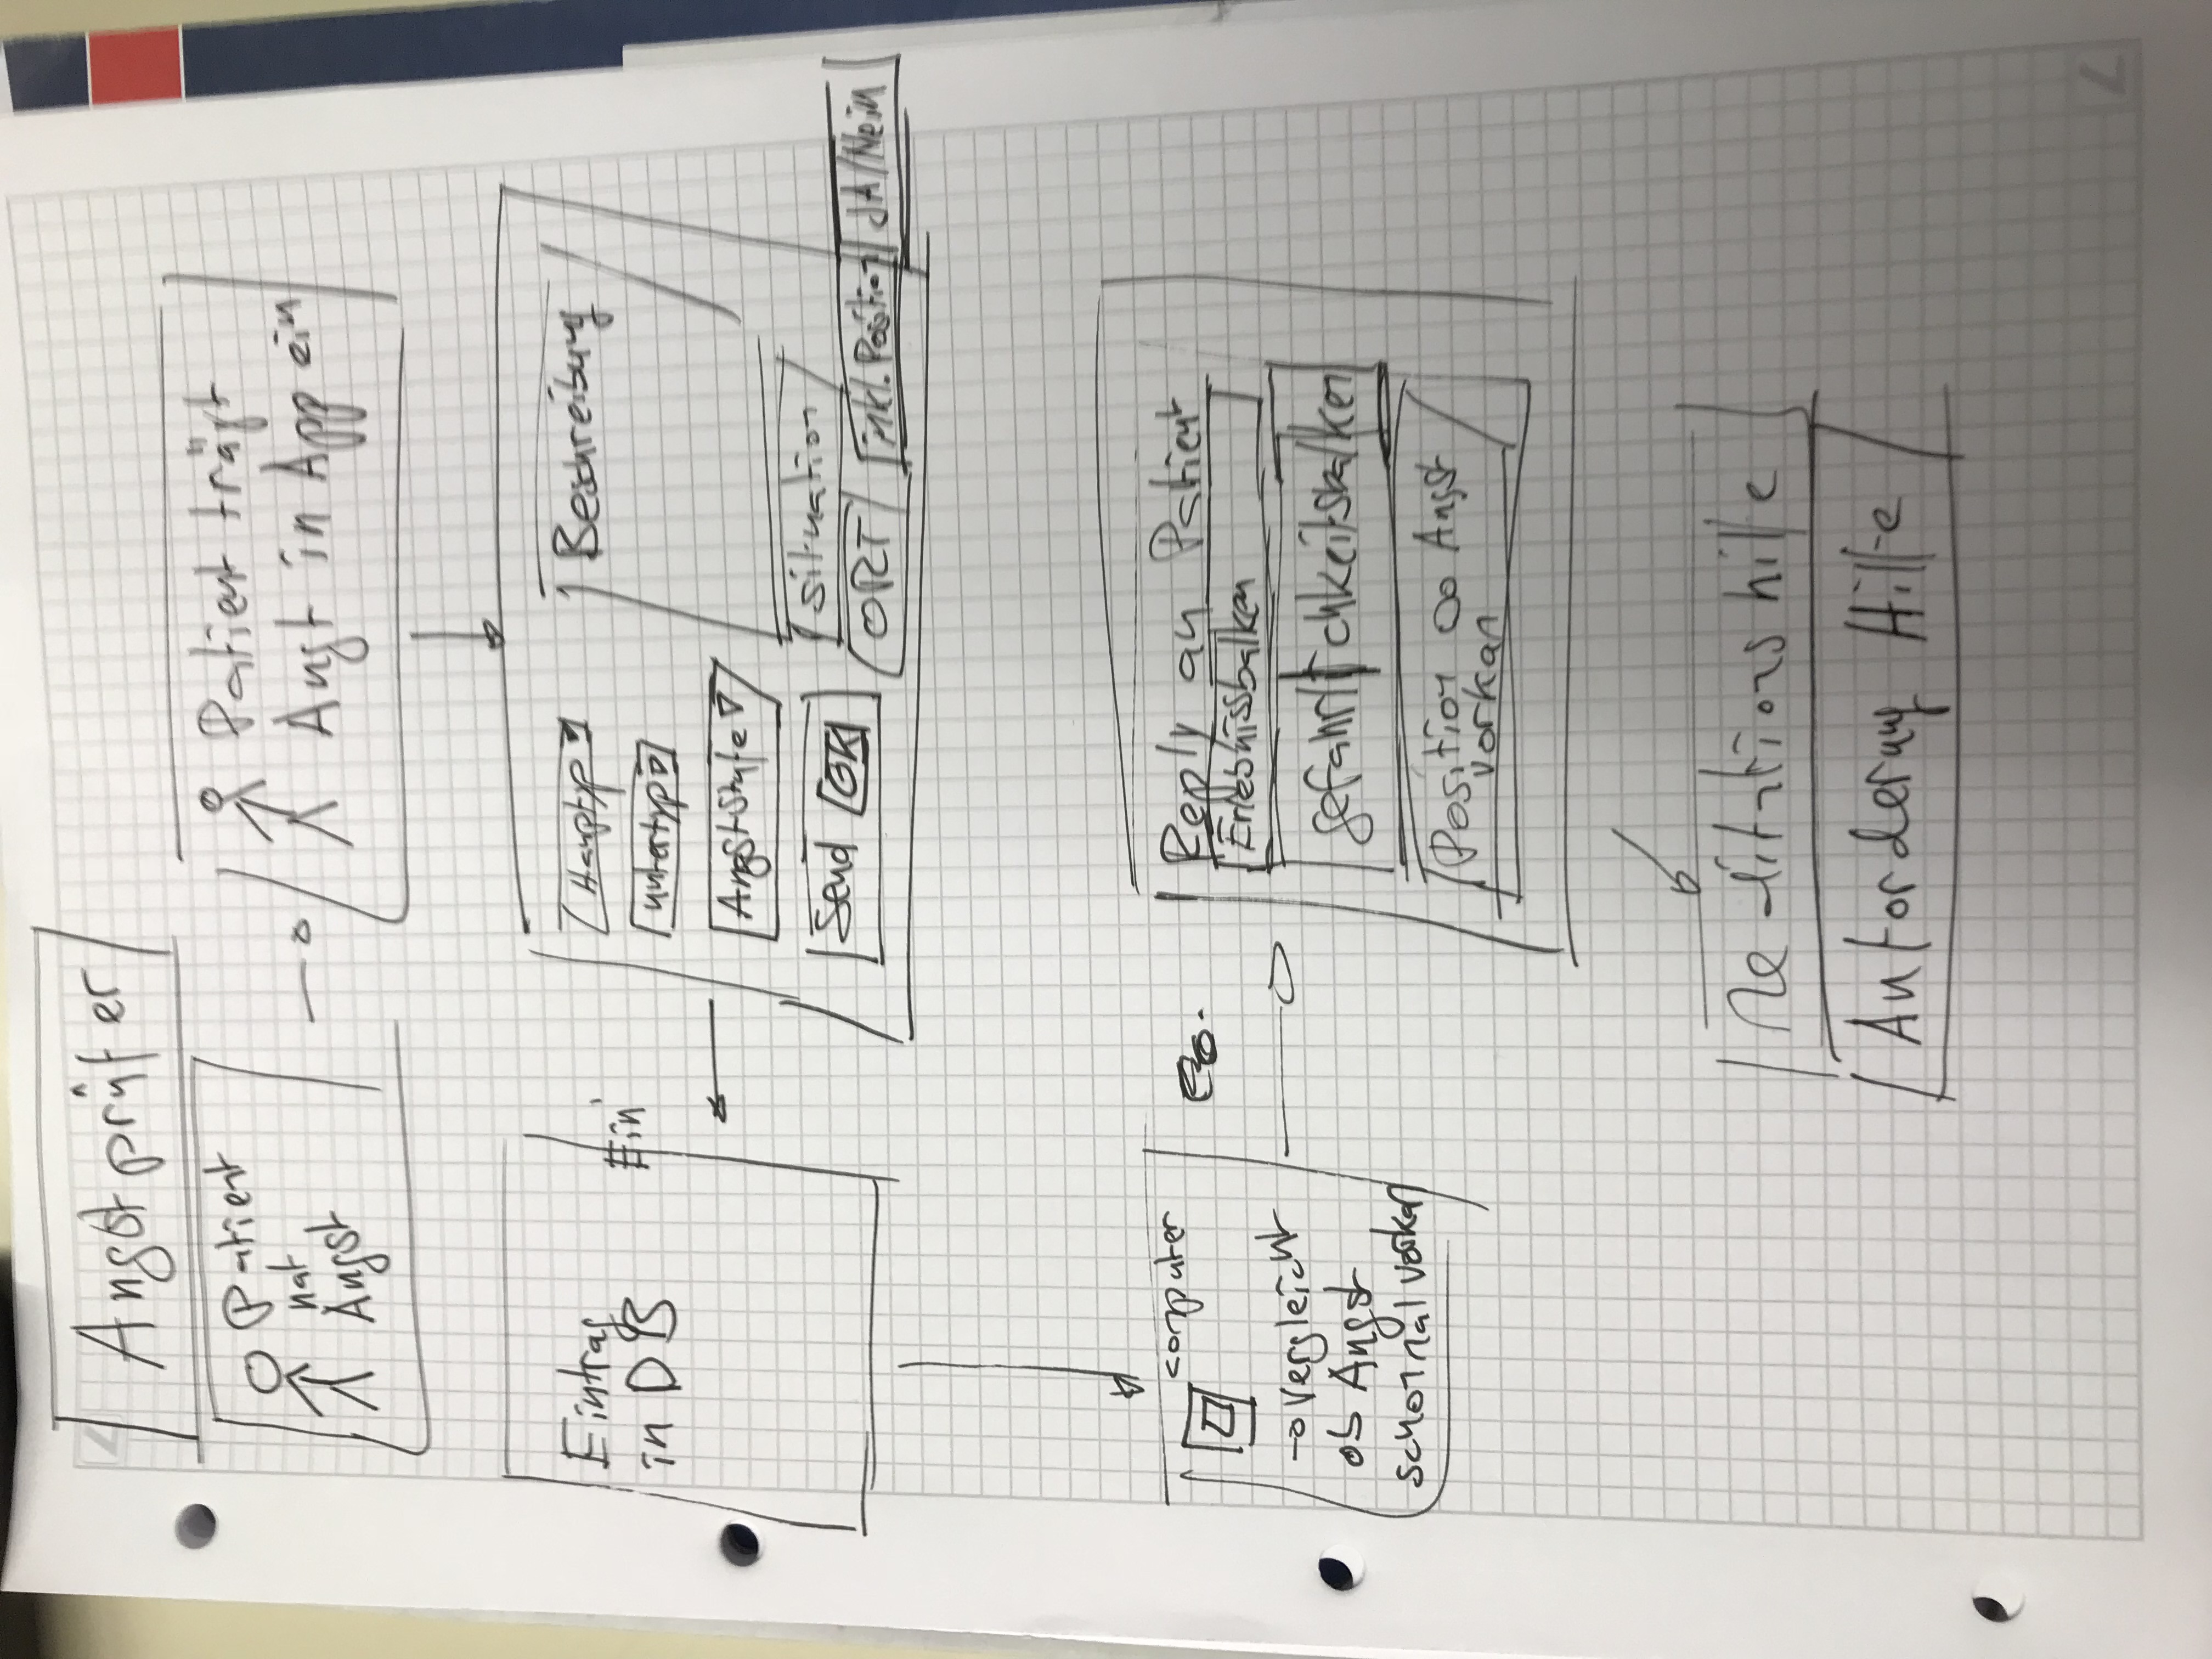 Angstprüfer
Patient
hat
Angst
Patient trägt
Angst in App ein
Haupttyp
Untertyp
Angststufe
Send OK
Beschreibung
Situation
ORT
inkl. Position
JA/Nein
Eintrag
in DB
computer
→ Vergleicht
ob Angst
schon mal vorkam
Reply an Patient
Erlebnissbalken
Gefährlichkeitsbalken
Position ob Angst
vorkam
Meditationshilfe
Anforderung Hilfe